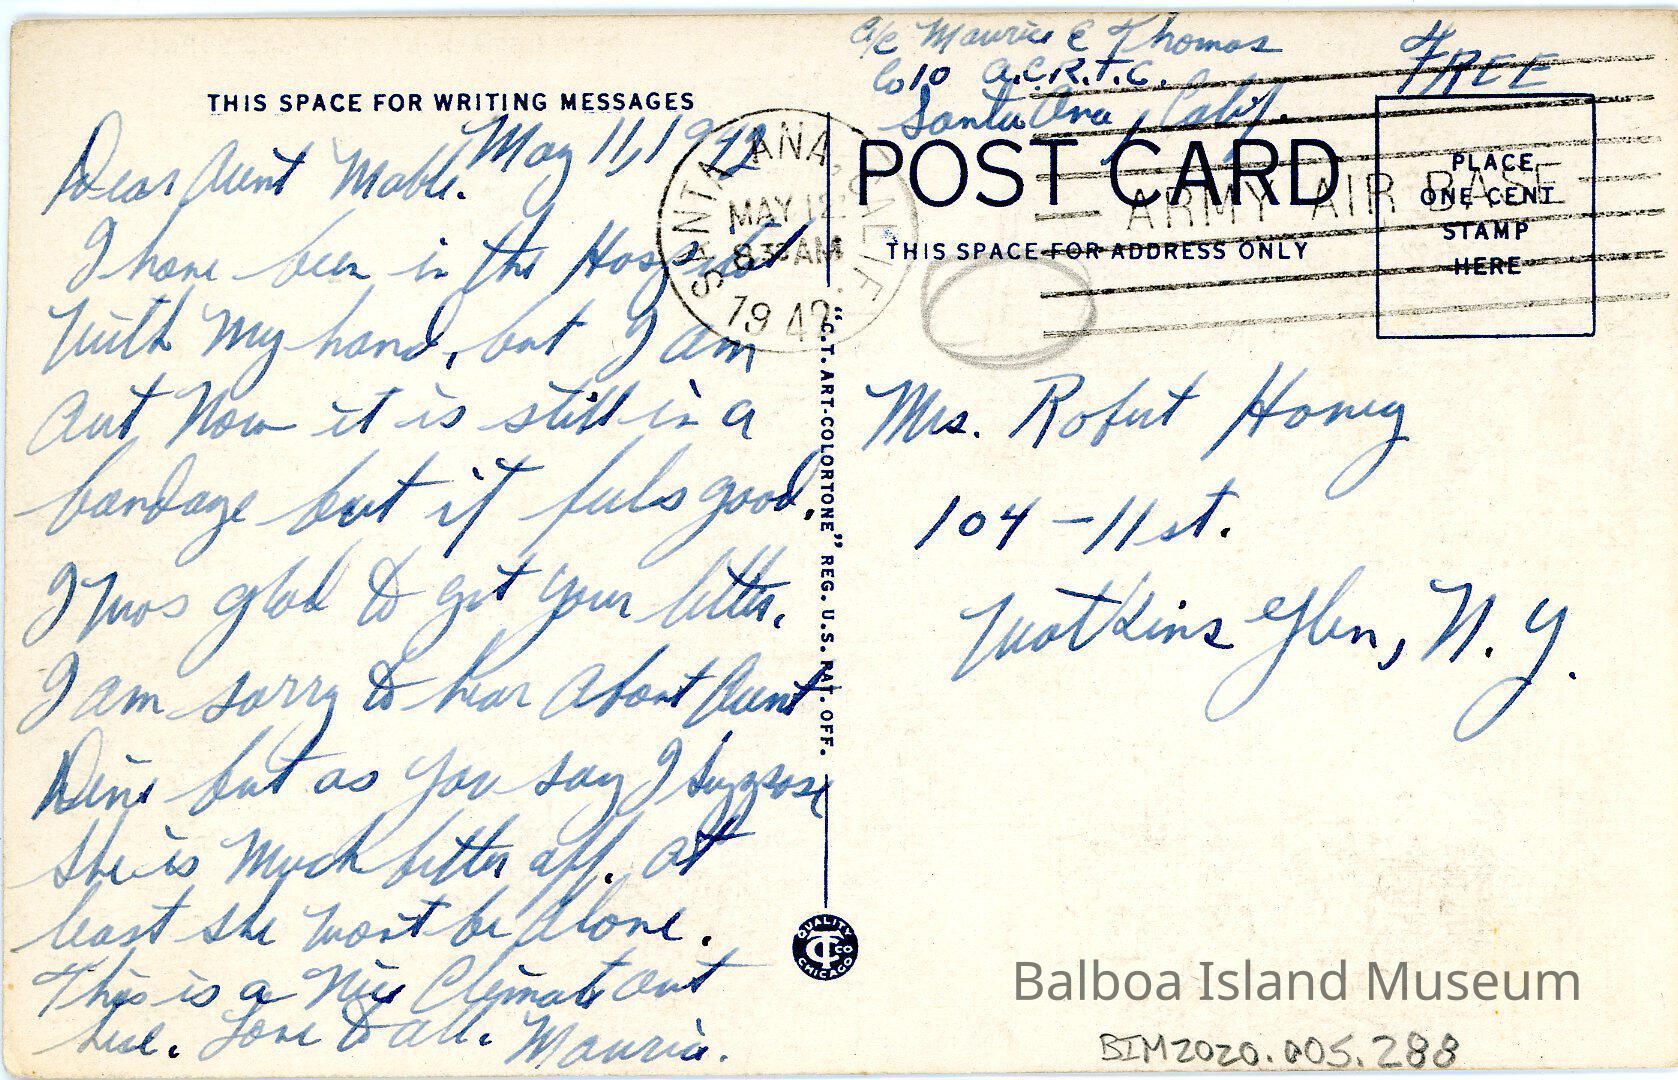 THIS SPACE FOR WRITING MESSAGES
May 11, 1942
Dear Aunt Mable.
I have been in the Hospital
With My hand, but I am
out Now it is still in a
bandage but it feels good.
I was glad to get your letter.
I am sorry to hear about Aunt
but as you say I suppose
she is Much better off. at
least she wont be alone.
This is a Nice Climate out
here. Love to all. Maurice.
"C.T. ART-COLORTONE" REG. U.S. PAT. OFF.
QUALITY
CT CO
CHICAGO
A/C Maurice E Thomas
Co 10 A.C.R.T.C.
Santa Ana, Calif.
FREE
SANTA ANA, CALIF.
MAY 12
8 30 AM
1942
ARMY AIR BASE
POST CARD
THIS SPACE FOR ADDRESS ONLY
PLACE
ONE CENT
STAMP
HERE
Mrs. Robert Honey
104 - 11 st.
Watkins Glen, N.Y.
Balboa Island Museum
BIM2020.005.288